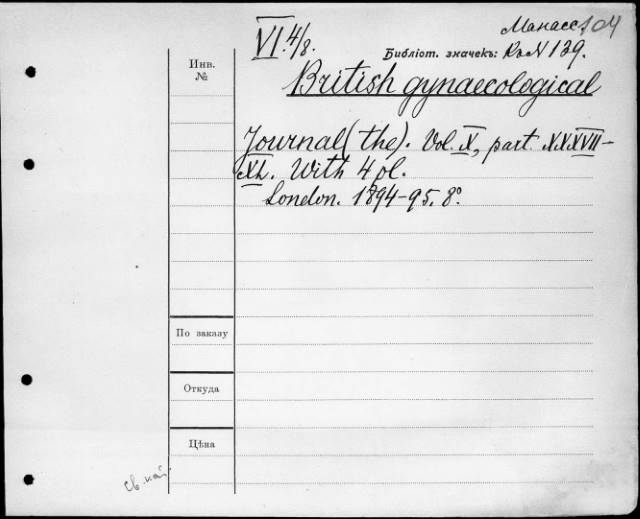 Манасс 104
VI 4/8.
Библіот. значекъ: Кз N 139.
Инв.
№
British gynaecological
Journal (the). Vol. X, part XXXVII–
XL. With 4 pl.
London. 1894–95. 8°.
По заказу
Откуда
Цѣна
св. май